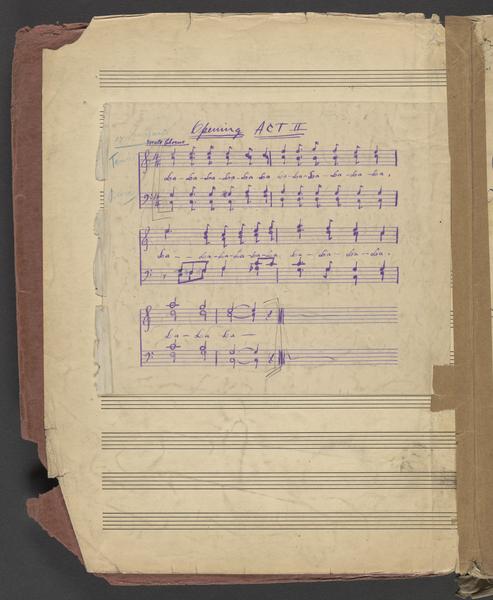 Opening ACT II
Male Chorus
La-La-La-La-La La La-La-La-La-La-La,
La - - La-La-La-La-La La-La-La-La.
La-La La —